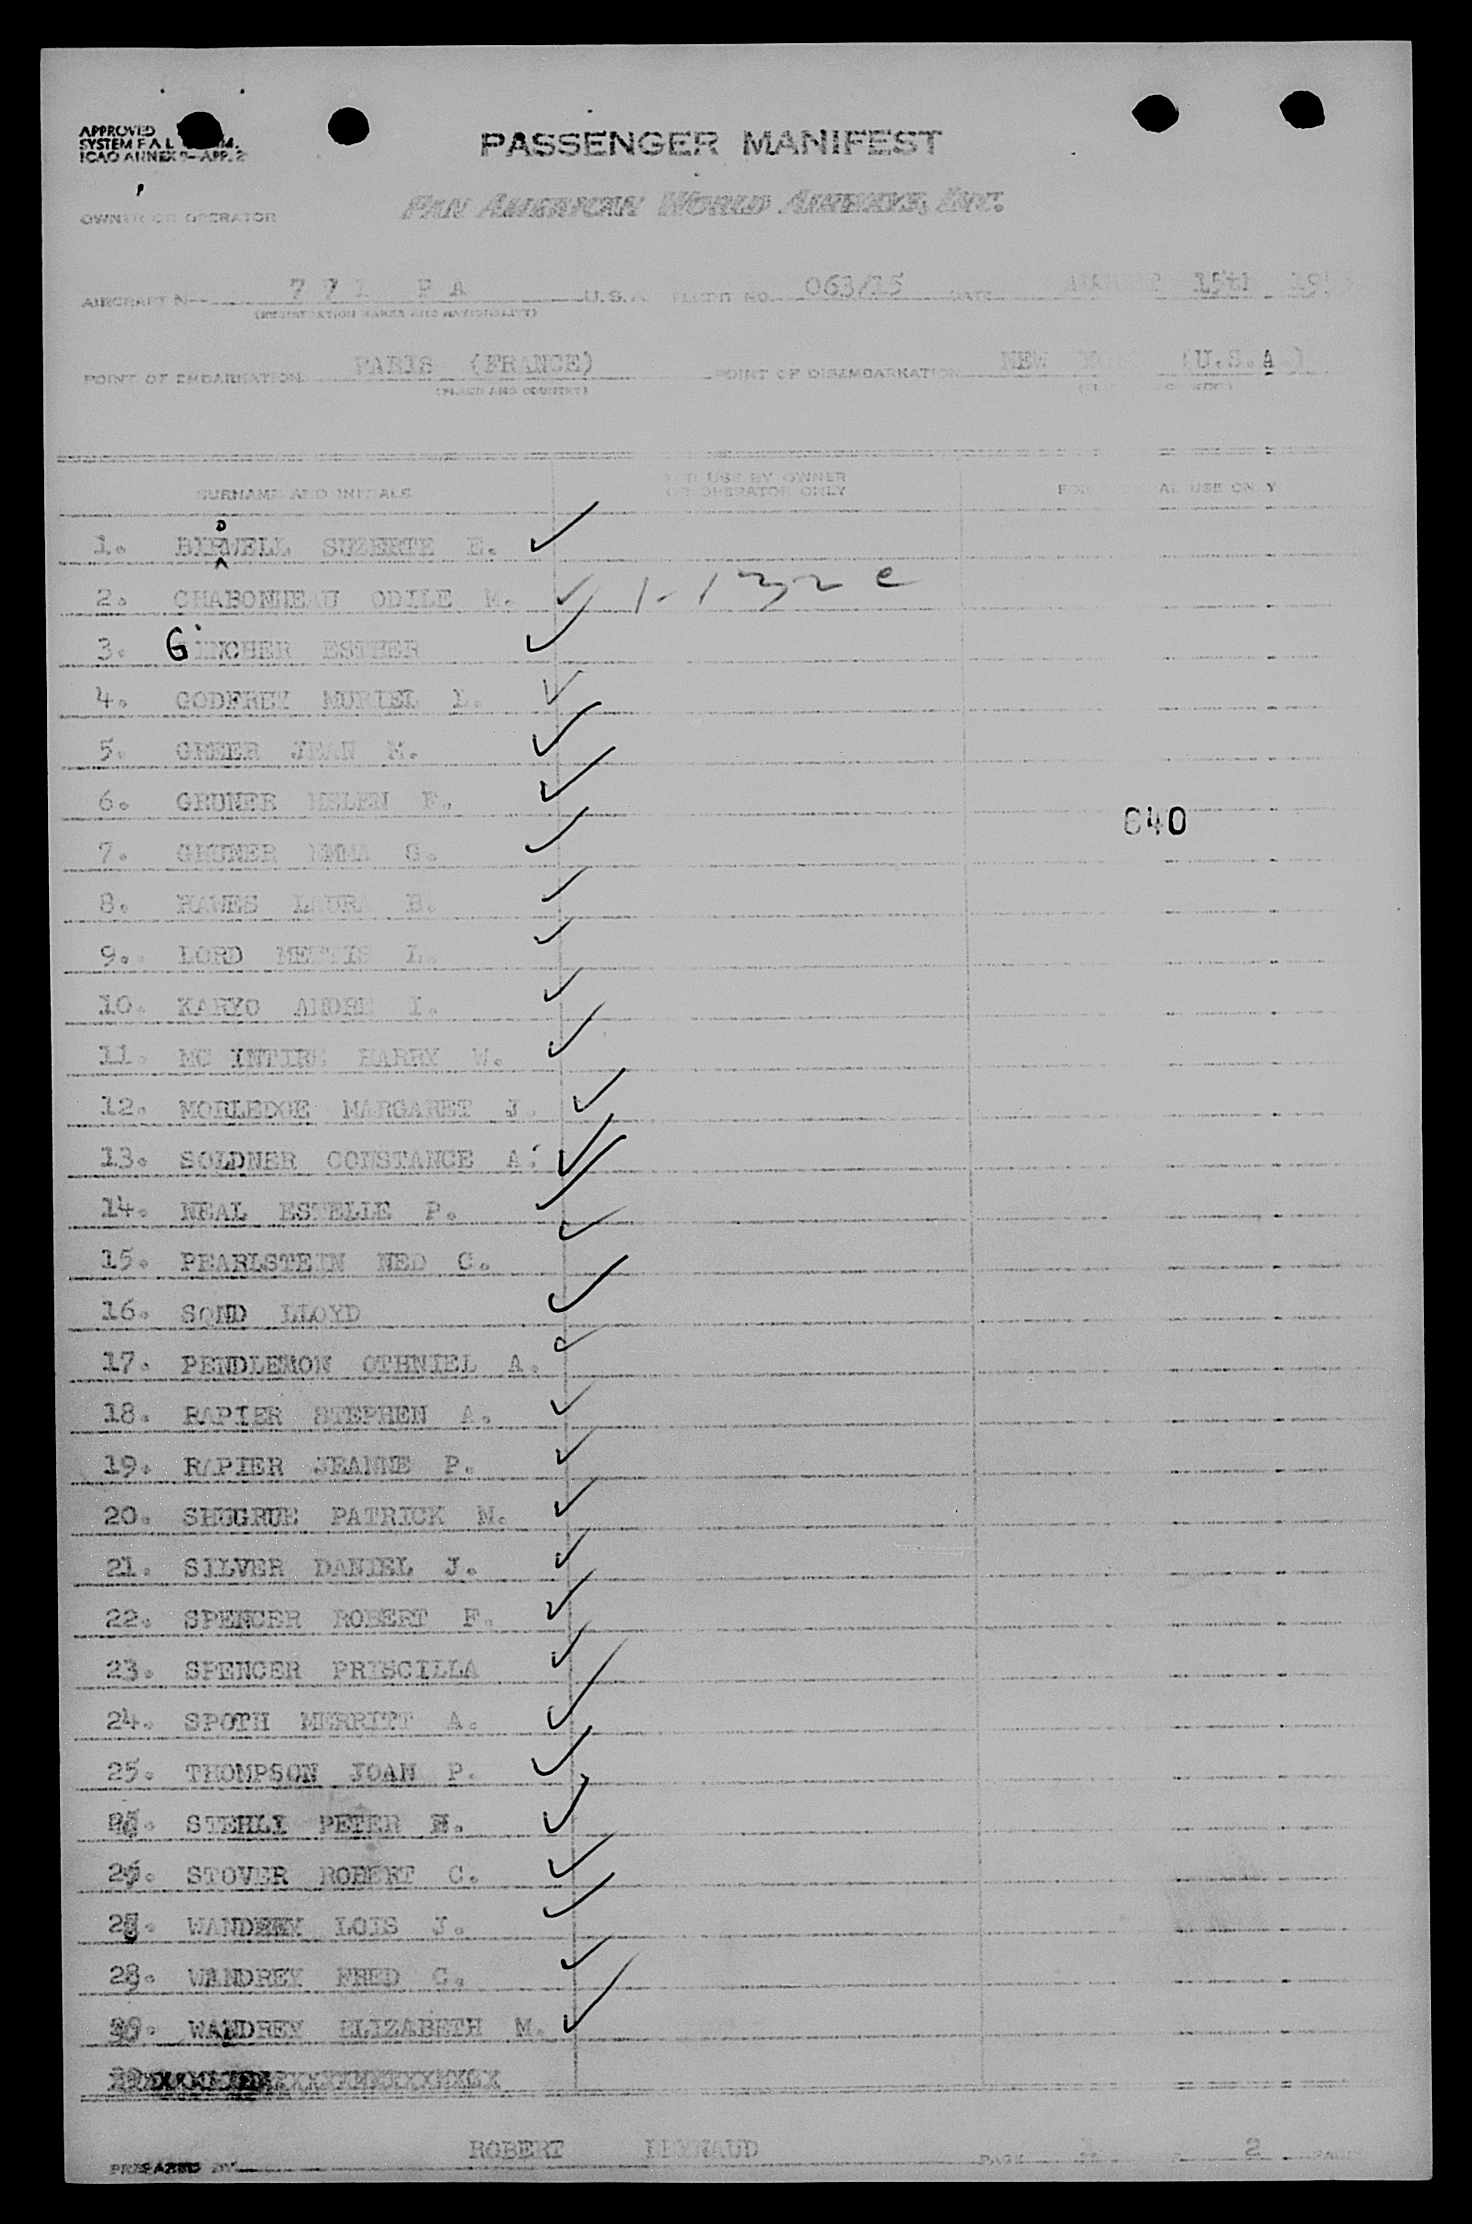 APPROVED
SYSTEM F.A.L.
ICAO ANNEX 9—APP. 2
PASSENGER MANIFEST
OWNER OR OPERATOR PAN AMERICAN WORLD AIRWAYS, INC.
AIRCRAFT N-- U.S.A. FLIGHT NO. 063/15 DATE 15th
(REGISTRATION MARKS AND NATIONALITY)
POINT OF EMBARKATION PARIS (FRANCE) POINT OF DISEMBARKATION NEW (U.S.A.)
(PLACE AND COUNTRY)
SURNAME AND INITIALS
FOR USE BY OWNER
OR OPERATOR ONLY
FOR OFFICIAL USE ONLY
D
1. BIRWELL SUZERTE E.
2. CHABONNEAU ODILE M.
3. GINCHER ESTHER
4. GODFREY MURIEL
5. GREER JEAN M.
6. GRUNER HELEN F.
640
7. GRUNER EMMA S.
8. HAWES LAURA B.
9. LORD L.
10. KARYO ANDRE I.
11. MC INTIRE HARRY W.
12. MORLEDGE MARGARET J.
13. SOLDNER CONSTANCE A.
14. NEAL ESTELLE P.
15. PEARLSTEIN NED C.
16. SOND LLOYD
17. PENDLEMON OTHNIEL A.
18. RAPIER STEPHEN A.
19. RAPIER JEANNE P.
20. SHUGRUE PATRICK M.
21. SILVER DANIEL J.
22. SPENCER ROBERT F.
23. SPENCER PRISCILLA
24. SPOTH MERRITT A.
25. THOMPSON JOAN P.
STEHLI PETER
STOVER ROBERT C.
WANDREY LOIS J.
WANDREY FRED C.
WANDREY ELIZABETH M.
PREPARED BY ROBERT PAGE 2